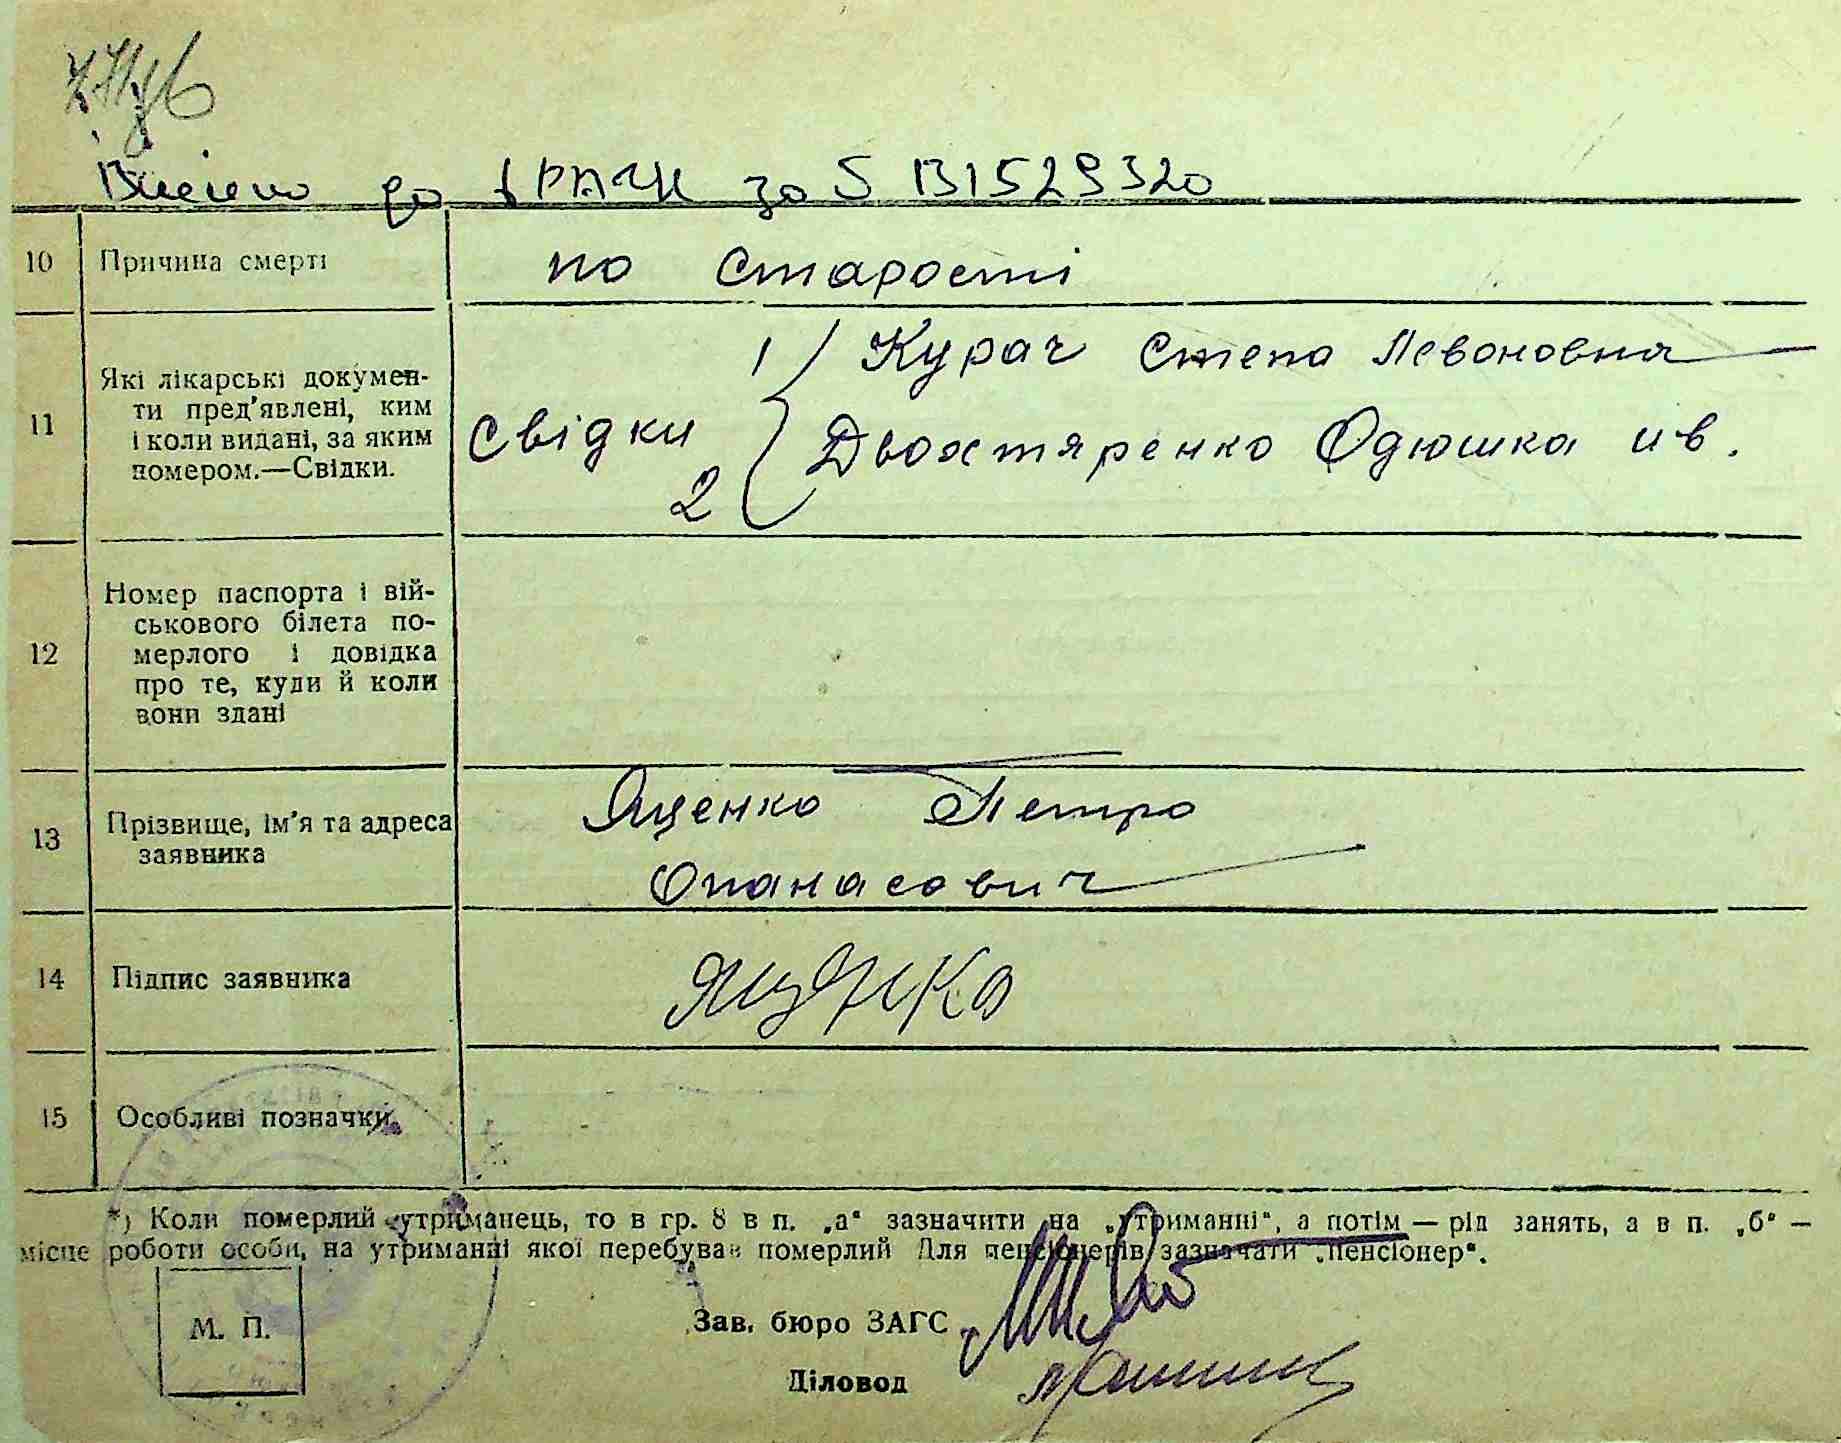 Внесено до ДРАЦС за S 131529320
10 Причина смерті по старості
11 Які лікарські докумен-
ти пред'явлені, ким
і коли видані, за яким
номером.—Свідки.
Свідки
1) Курач Степа Левоновна
2 Двохтяренко Одюшка ив.
12 Номер паспорта і вій-
ськового білета по-
мерлого і довідка
про те, куди й коли
вони здані
13 Прізвище, ім'я та адреса
заявника
Яценко Петро
Опанасович
14 Підпис заявника Яценко
15 Особливі позначки
*) Коли померлий утриманець, то в гр. 8 в п. „а“ зазначити на „утриманні“, а потім — рід занять, а в п. „б“ —
місце роботи особи, на утриманні якої перебував померлий Для пенсіонерів зазначати „пенсіонер“.
М. П.
Зав. бюро ЗАГС
Діловод